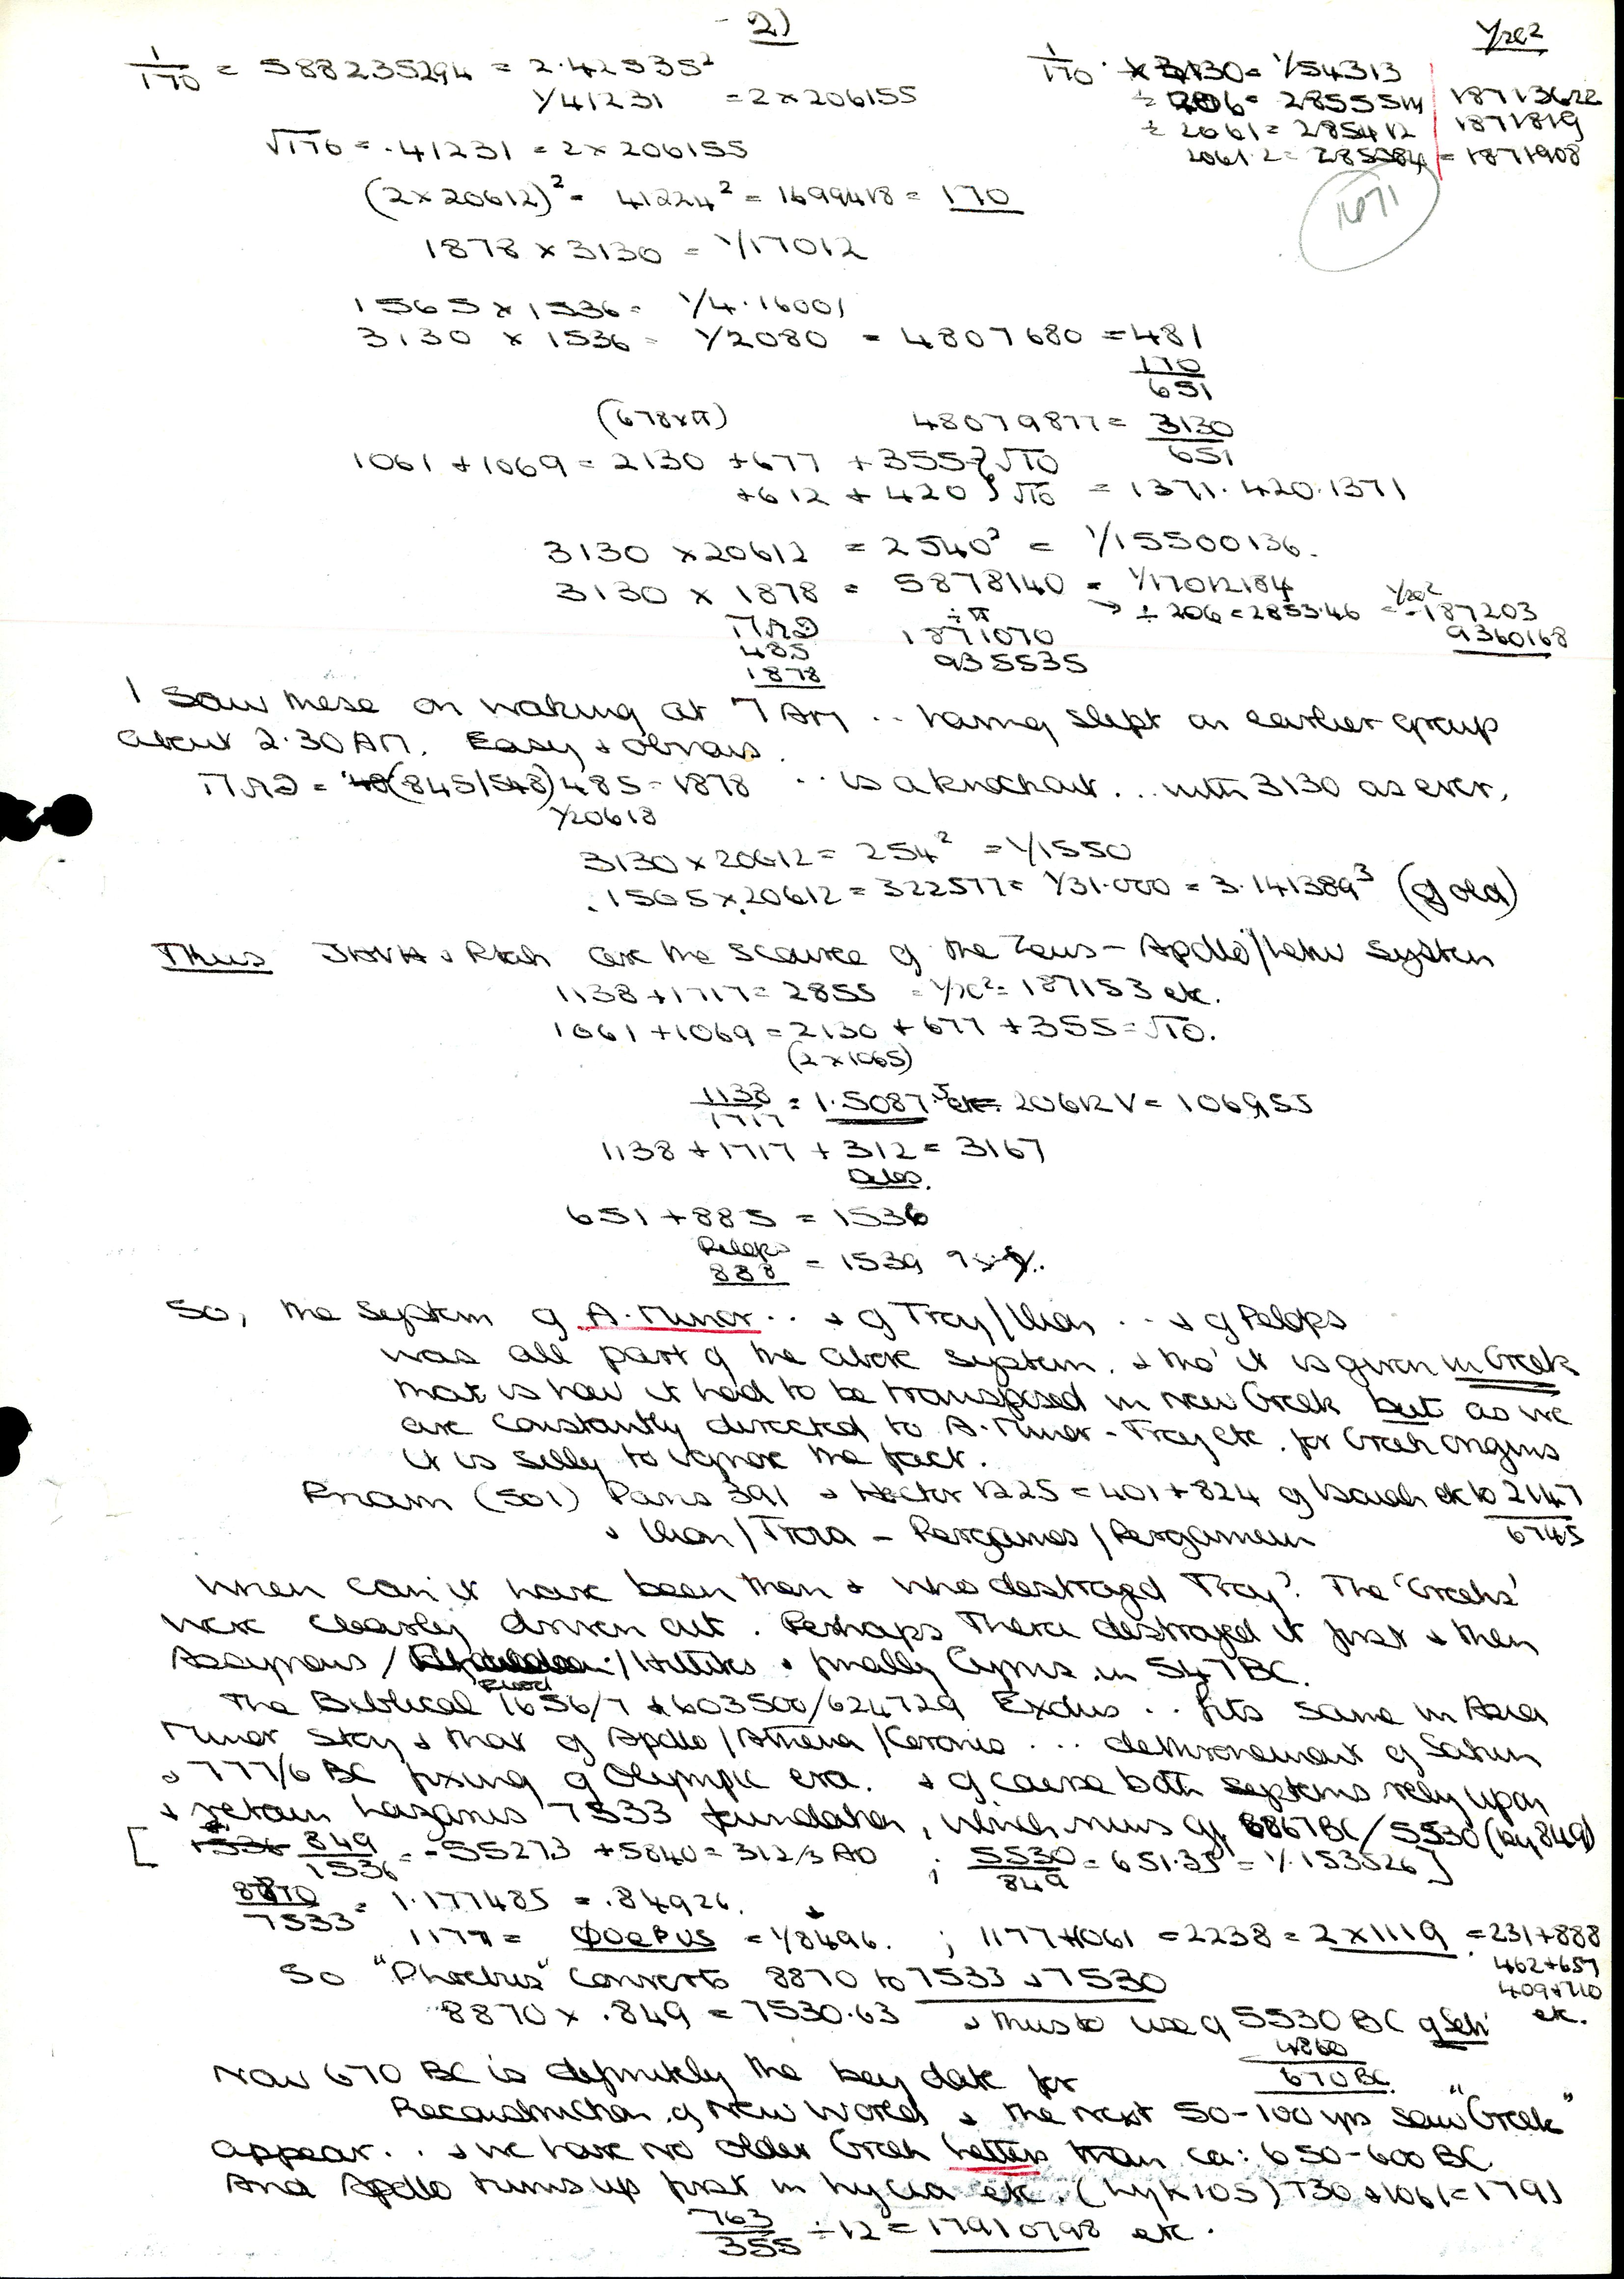 2)
1/170 = 588235294 = 2.42535²
1/41231 = 2 × 206155
√170 = .41231 = 2 × 206155
(2 × 20612)² = 41224² = 1699418 = 170
1878 × 3130 = 1/17012
1/x²
1/170 × 3130 = 1/54313
÷ 206 = 28555 | 18713622
÷ 2061 = 285412 | 1871819
2061.2 = 285384 = 1871908
1671
1565 × 1536 = 1/4.16001
3130 × 1536 = 1/2080 = 4807680 = 481
170
651
(678×π) 48079877 = 3130/651
1061 + 1069 = 2130 + 677 + 355 } √10
+ 612 + 420 } √10 = 1371.420.1371
3130 × 20612 = 2540² = 1/15500136.
3130 × 1878 = 5878140 = 1/17012184
→ ÷ 206 = 2853.46 = 1/x² 187203
9360168
485 1871070
1878 935535
÷ π
I saw these on waking at 7 AM .. having slept on earlier group
about 2.30 AM. Easy & obvious.
= (845/548) 485 - 1878 .. is a knockout ... with 3130 as ever,
1/20618
3130 × 20612 = 254² = 1/1550
.1565 × .20612 = 322577 = 1/31.000 = 3.141389³ (gold)
Thus JHVH & Ptah are the source of the Zeus - Apollo/Leto system
1138 + 1717 = 2855 = 1/x² = 187153 etc.
1061 + 1069 = 2130 + 677 + 355 = √10.
(2 × 1065)
1138/1717 = 1.5087 etc = 20612 √ = 106955
1138 + 1717 + 312 = 3167
Delos.
651 + 885 = 1536
Pelops
888 = 1539
So, the system of A. Minor .. & of Troy/Ilion .. & of Pelops
was all part of the above system. & tho' it is given in Greek
that is how it had to be transposed in new Greek but as we
are constantly directed to A. Minor - Troy etc. for Greek origins
it is silly to ignore the fact.
Priam (501) Paris 391 & Hector 1225 = 401 + 824 of Isaiah etc to 2147
6745
& Ilion/Troia - Pergamos/Pergamum
When can it have been then & who destroyed Troy? The 'Greeks'
were clearly driven out. Perhaps Thera destroyed it first & then
Assyrians / /Hittites & finally Cyrus in 547 BC.
Flood
The Biblical 1656/7 & 603500/624729 Exodus .. fits same in Asia
Minor story & that of Apollo/Athena/Coronis ... dethronement of Saturn
& 777/6 BC fixing of Olympic era. & of course both systems rely upon
& retain Lazarus 7533 foundation, which runs of 8867 BC/5530 (by 849)
[ 849/1536 = -55273 + 5840 = 312/3 AD ; 5530/849 = 651.35 = 1/.153526 ]
8870/7533 = 1.177485 = .84926.
1177 = ΦΟΕΒUS = 1/8496. ; 1177 + 1061 = 2238 = 2 × 1119 = 231 + 888
462 + 657
409 + 710
etc.
So "Phoebus" converts 8870 to 7533 & 7530
8870 × .849 = 7530.63 & thus to use of 5530 BC of Seti
4860
670 BC.
Now 670 BC is definitely the key date for
Reconstruction of New World & the next 50-100 yrs saw "Greek"
appear .. & we have no older Greek letters than ca: 650-600 BC.
And Apollo turns up first in Lycia etc. (Lyk 105) 730 + 1061 = 1791
763/355 ÷ 12 = 17910798 etc.